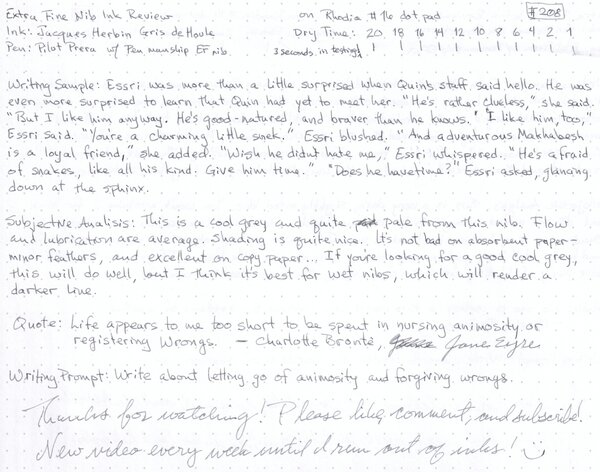 Extra Fine Nib Ink Review on Rhodia #16 dot pad #208
Ink: Jacques Herbin Gris de Houle Dry Time: 20 18 16 14 12 10 8 6 4 2 1
Pen: Pilot Prera w/ Penmanship EF nib 3 seconds in testing
Writing Sample: Essri was more than a little surprised when Quin's staff said hello. He was
even more surprised to learn that Quin had yet to meet her. "He's rather clueless," she said.
"But I like him anyway. He's good-natured, and braver than he knows." "I like him, too,"
Essri said. "You're a charming little snek." Essri blushed. "And adventurous Makhabesh
is a loyal friend," she added. "Wish he didn't hate me," Essri whispered. "He's afraid
of snakes, like all his kind. Give him time." "Does he have time?" Essri asked, glancing
down at the sphinx.
Subjective Analisis: This is a cool grey and quite pale from this nib. Flow
and lubrication are average. Shading is quite nice. It's not bad on absorbent paper-
minor feathers, and excellent on copy paper... If you're looking for a good cool grey,
this will do well, but I think it's best for wet nibs, which will render a
darker line.
Quote: Life appears to me too short to be spent in nursing animosity or
registering wrongs. - Charlotte Brontë, Jane Eyre
Writing Prompt: Write about letting go of animosity and forgiving wrongs.
Thanks for watching! Please like, comment, and subscribe!
New video every week until I run out of inks!